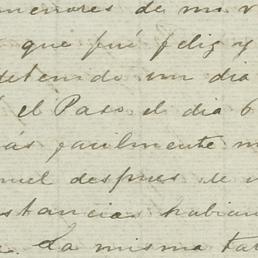 menores de mi v
que fué feliz y
detenido un dia
el Paso el dia 6
ás facilmente m
uel despues de
stancias habian
. La misma tar